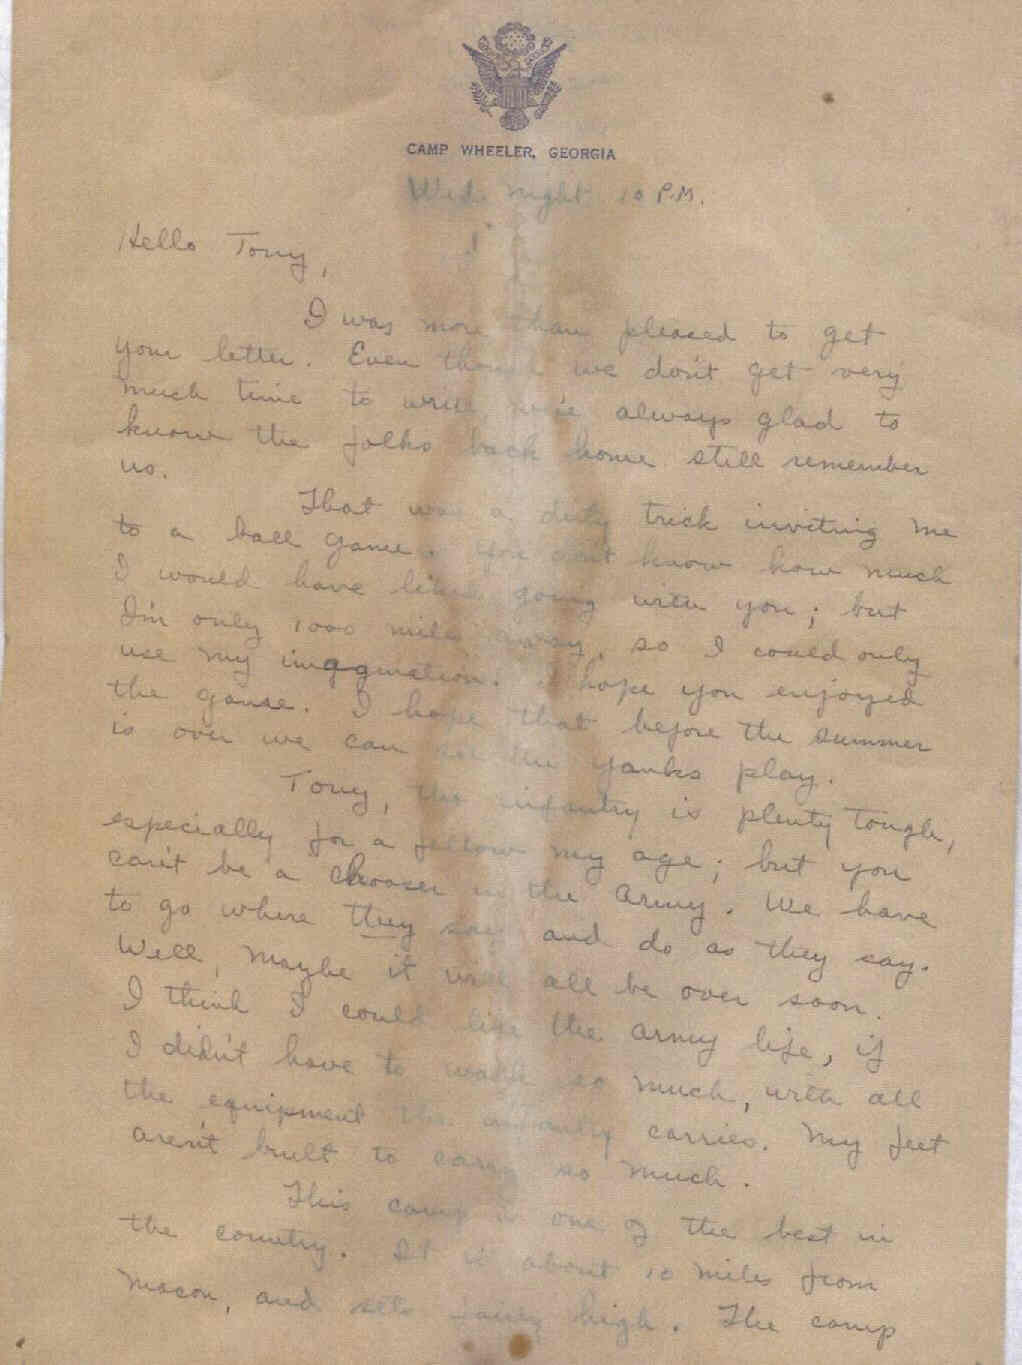 CAMP WHEELER, GEORGIA
Wed. night 10 P.M.
Hello Tony,
I was more than pleased to get
your letter. Even though we don't get very
much time to write we're always glad to
know the folks back home still remember
us.
That was a dirty trick inviting me
to a ball game. You don't know how much
I would have liked going with you; but
I'm only 1000 miles away, so I could only
use my imaggination. I hope you enjoyed
the game. I hope that before the summer
is over we can see the Yanks play.
Tony, the infantry is plenty tough,
especially for a fellow my age; but you
can't be a chooser in the Army. We have
to go where they say and do as they say.
Well, maybe it will all be over soon.
I think I could like the army life, if
I didn't have to walk so much, with all
the equipment the infantry carries. My feet
aren't built to carry so much.
This camp is one of the best in
the country. It is about 10 miles from
Macon, and sets fairly high. The camp